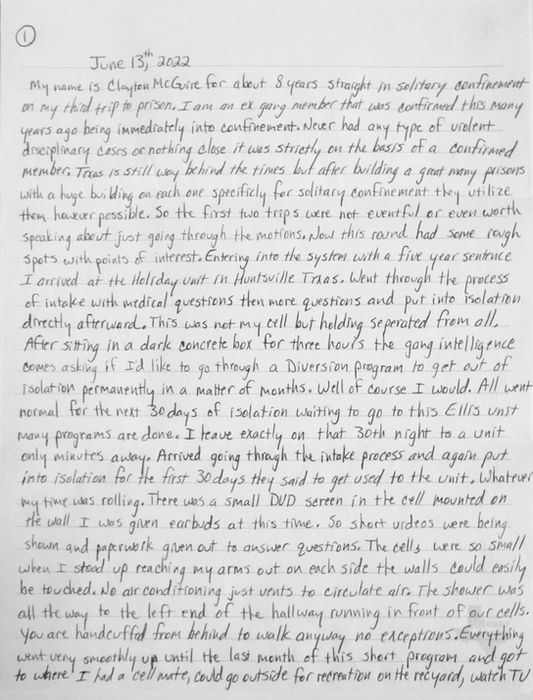 1
June 13,th 2022
My name is Clayton McGuire for about 8 years straight in solitary confinement
on my third trip to prison. I am an ex gang member that was confirmed this many
years ago being immediately into confinement. Never had any type of violent
disciplinary cases or nothing close it was strictly on the basis of a confirmed
member. Texas is still way behind the times but after building a great many prisons
with a huge building on each one specificly for solitary confinement they utilize
them however possible. So the first two trips were not eventful or even worth
speaking about just going through the motions. Now this round had some rough
spots with points of interest. Entering into the system with a five year sentence
I arrived at the Holiday unit in Huntsville Texas. Went through the process
of intake with medical questions then more questions and put into isolation
directly afterward. This was not my cell but holding seperated from all.
After sitting in a dark concrete box for three hours the gang intelligence
comes asking if I'd like to go through a Diversion program to get out of
isolation permanently in a matter of months. Well of course I would. All went
normal for the next 30 days of isolation waiting to go to this Ellis unit
many programs are done. I leave exactly on that 30th night to a unit
only minutes away. Arrived going through the intake process and again put
into isolation for the first 30 days they said to get used to the unit. Whatever
my time was rolling. There was a small DVD screen in the cell mounted on
the wall I was given earbuds at this time. So short videos were being
shown and paperwork given out to answer questions. The cells were so small
when I stood up reaching my arms out on each side the walls could easily
be touched. No air conditioning just vents to circulate air. The shower was
all the way to the left end of the hallway running in front of our cells.
You are handcuffed from behind to walk anyway no exceptions. Everything
went very smoothly up until the last month of this short program and got
to where I had a cell mate, could go outside for recreation on the recyard, watch TV